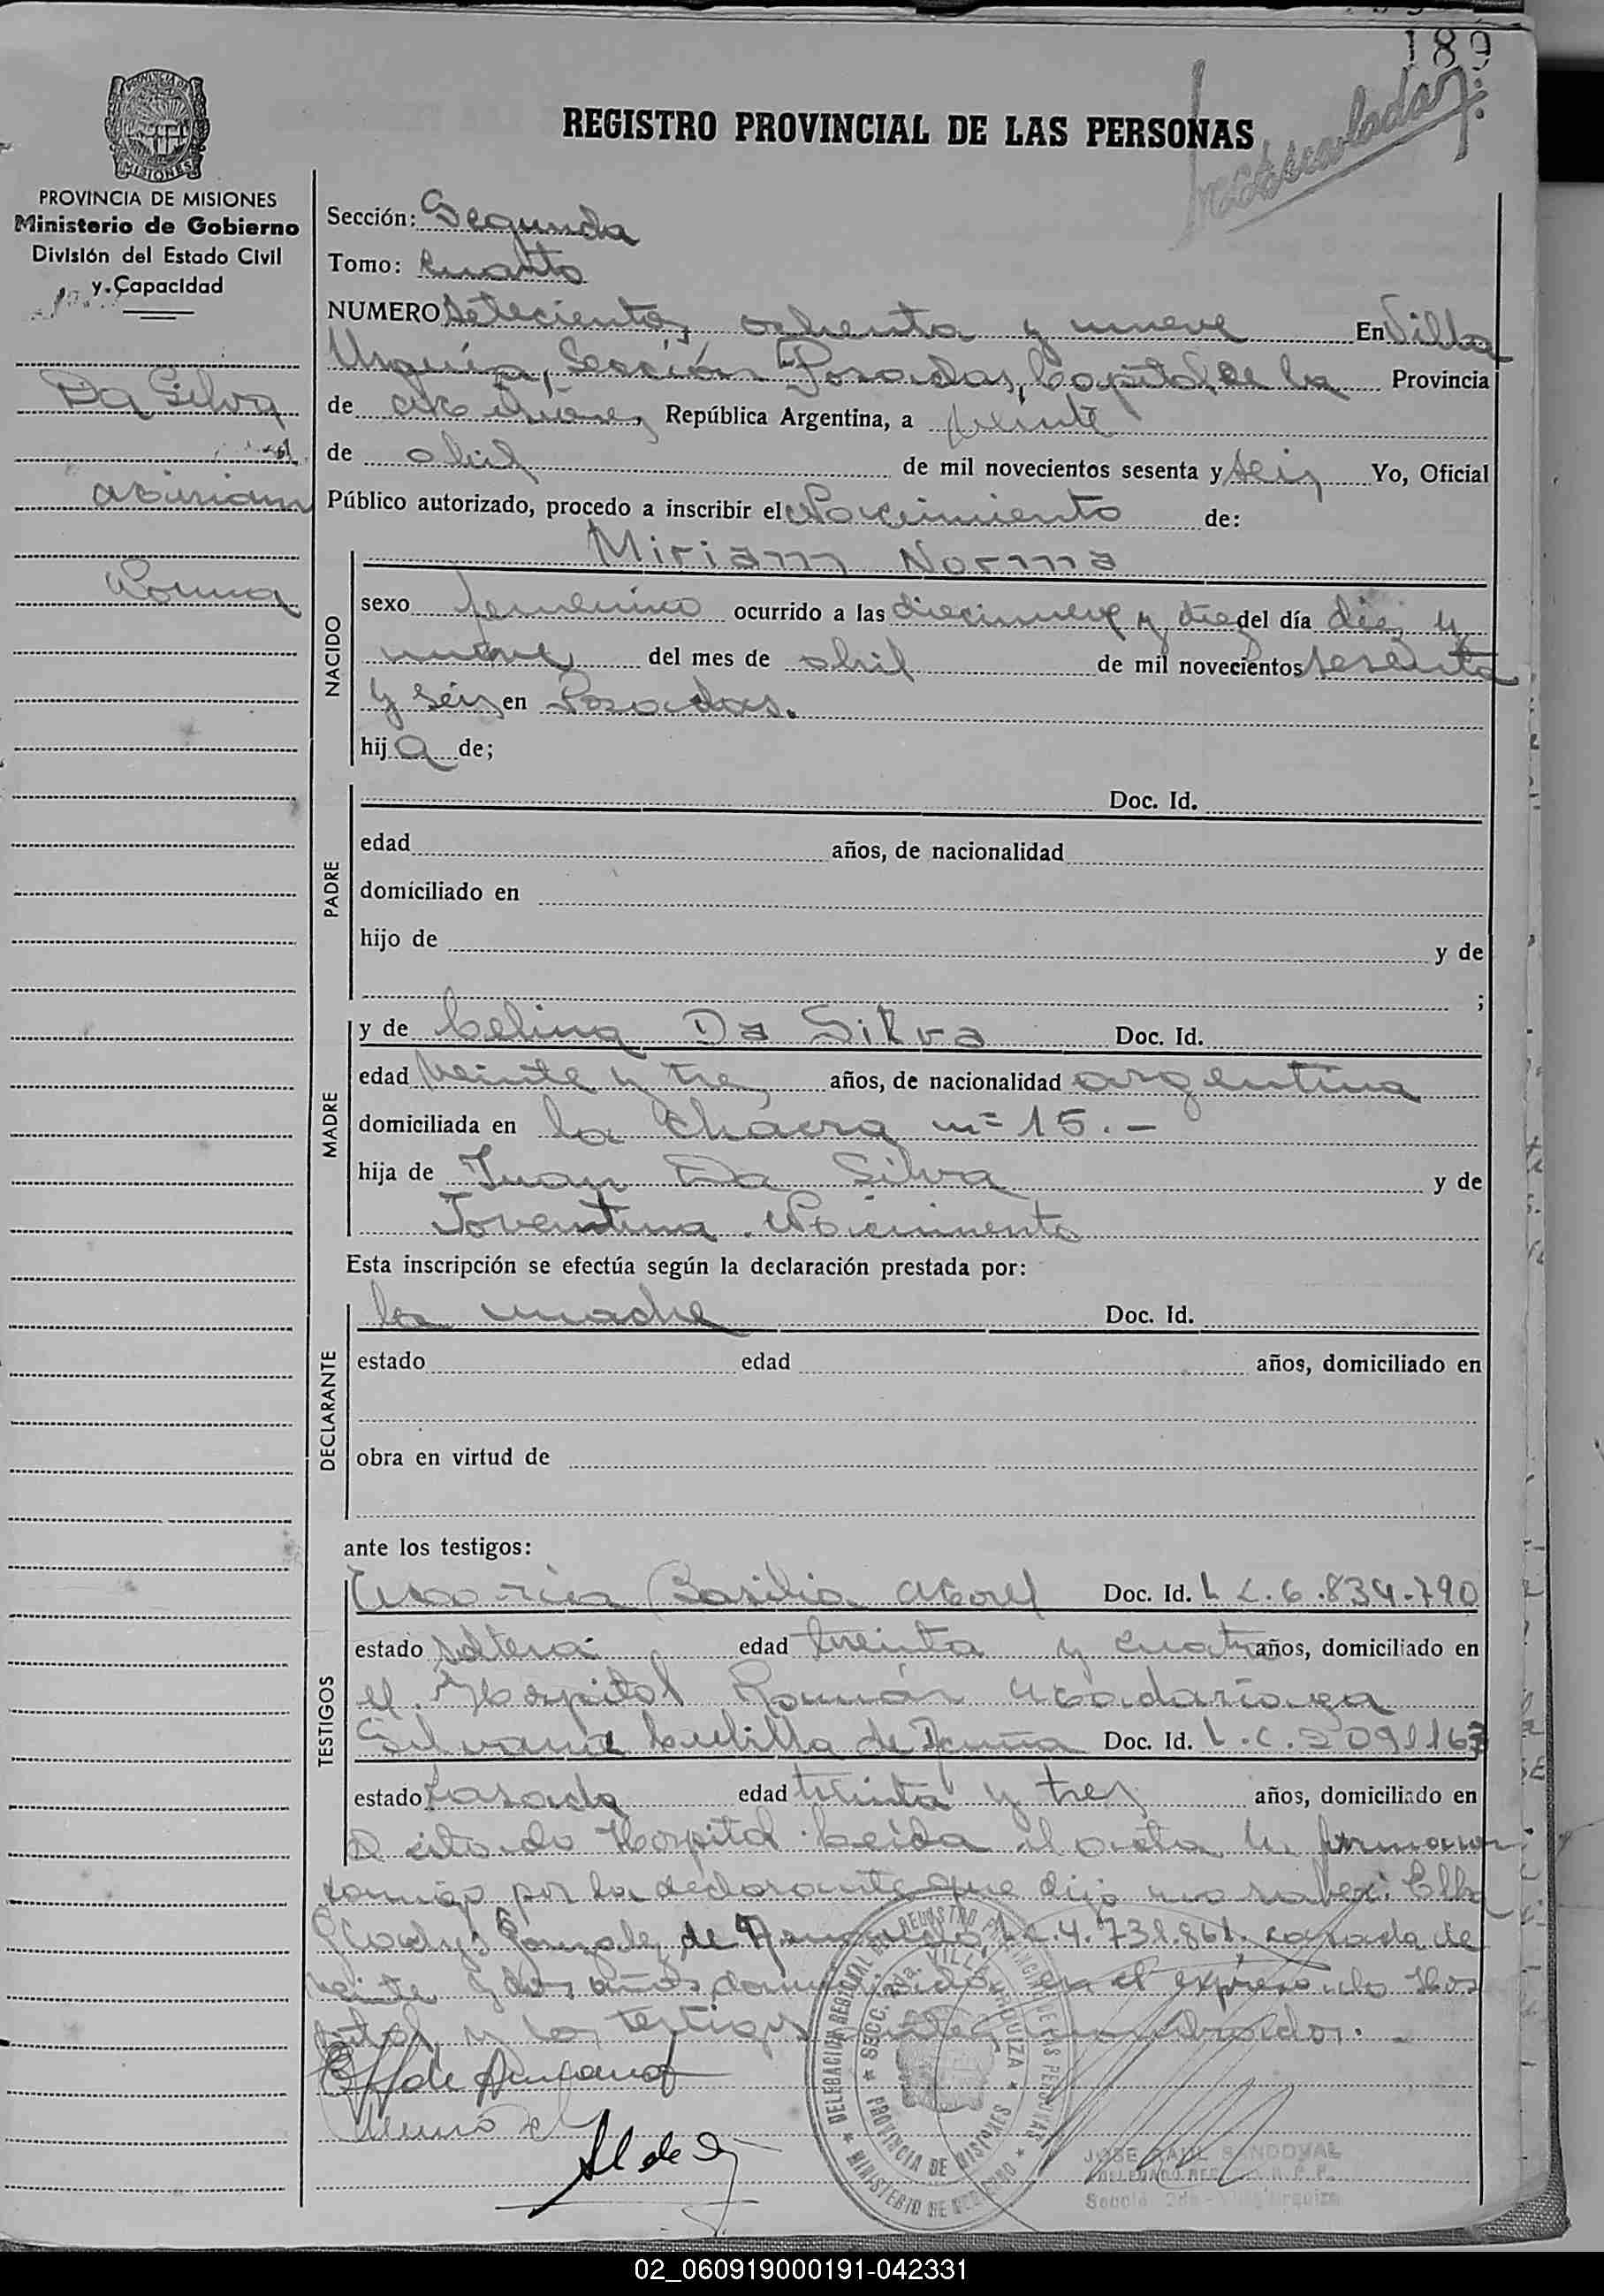 189
Matriculada
REGISTRO PROVINCIAL DE LAS PERSONAS
PROVINCIA DE MISIONES
Ministerio de Gobierno
División del Estado Civil
y Capacidad
Da Silva
Miriam
Norma
Sección: Segunda
Tomo: Cuarto
NUMERO Setecientos ochenta y nueve En Villa
Urquiza, Sección Posadas, Capital de la Provincia
de Misiones, República Argentina, a veinte
de abril de mil novecientos sesenta y seis Yo, Oficial
Público autorizado, procedo a inscribir el Nacimiento de:
NACIDO
Miriam Norma
sexo femenino ocurrido a las diecinueve y diez del día diez y
nueve del mes de abril de mil novecientos sesenta
y seis en Posadas.
hija de;
PADRE
Doc. Id.
edad años, de nacionalidad
domiciliado en
hijo de y de
;
MADRE
y de Celina Da Silva Doc. Id.
edad veinte y tres años, de nacionalidad argentina
domiciliada en la Chacra nº 15.-
hija de Juan Da Silva y de
Joventina Nacimento
Esta inscripción se efectúa según la declaración prestada por:
DECLARANTE
la madre Doc. Id.
estado edad años, domiciliado en
obra en virtud de
ante los testigos:
TESTIGOS
María Basilia Morel Doc. Id. L C. 6.834.790
estado soltera edad treinta y cuatro años, domiciliado en
el Hospital Ramón Madariaga
Silvana Cubilla de Acuña Doc. Id. L.C. 2091163
estado casada edad treinta y tres años, domiciliado en
el citado Hospital. Leída el acta la firmaron
conmigo por la declarante que dijo no saber: Elba
Gladys Gonzalez de L.C. 4.731.861. casada de
veinte y dos años domiciliada en el expresado Hos
pital y los testigos antes nombrados.-
DELEGACION REGIONAL DEL REGISTRO PROVINCIAL DE LAS PERSONAS
SECC. 2da. VILLA URQUIZA
PROVINCIA DE MISIONES
MINISTERIO DE GOBIERNO
JOSE RAUL SANDOVAL
Sección 2da - Villa Urquiza
02_060919000191-042331